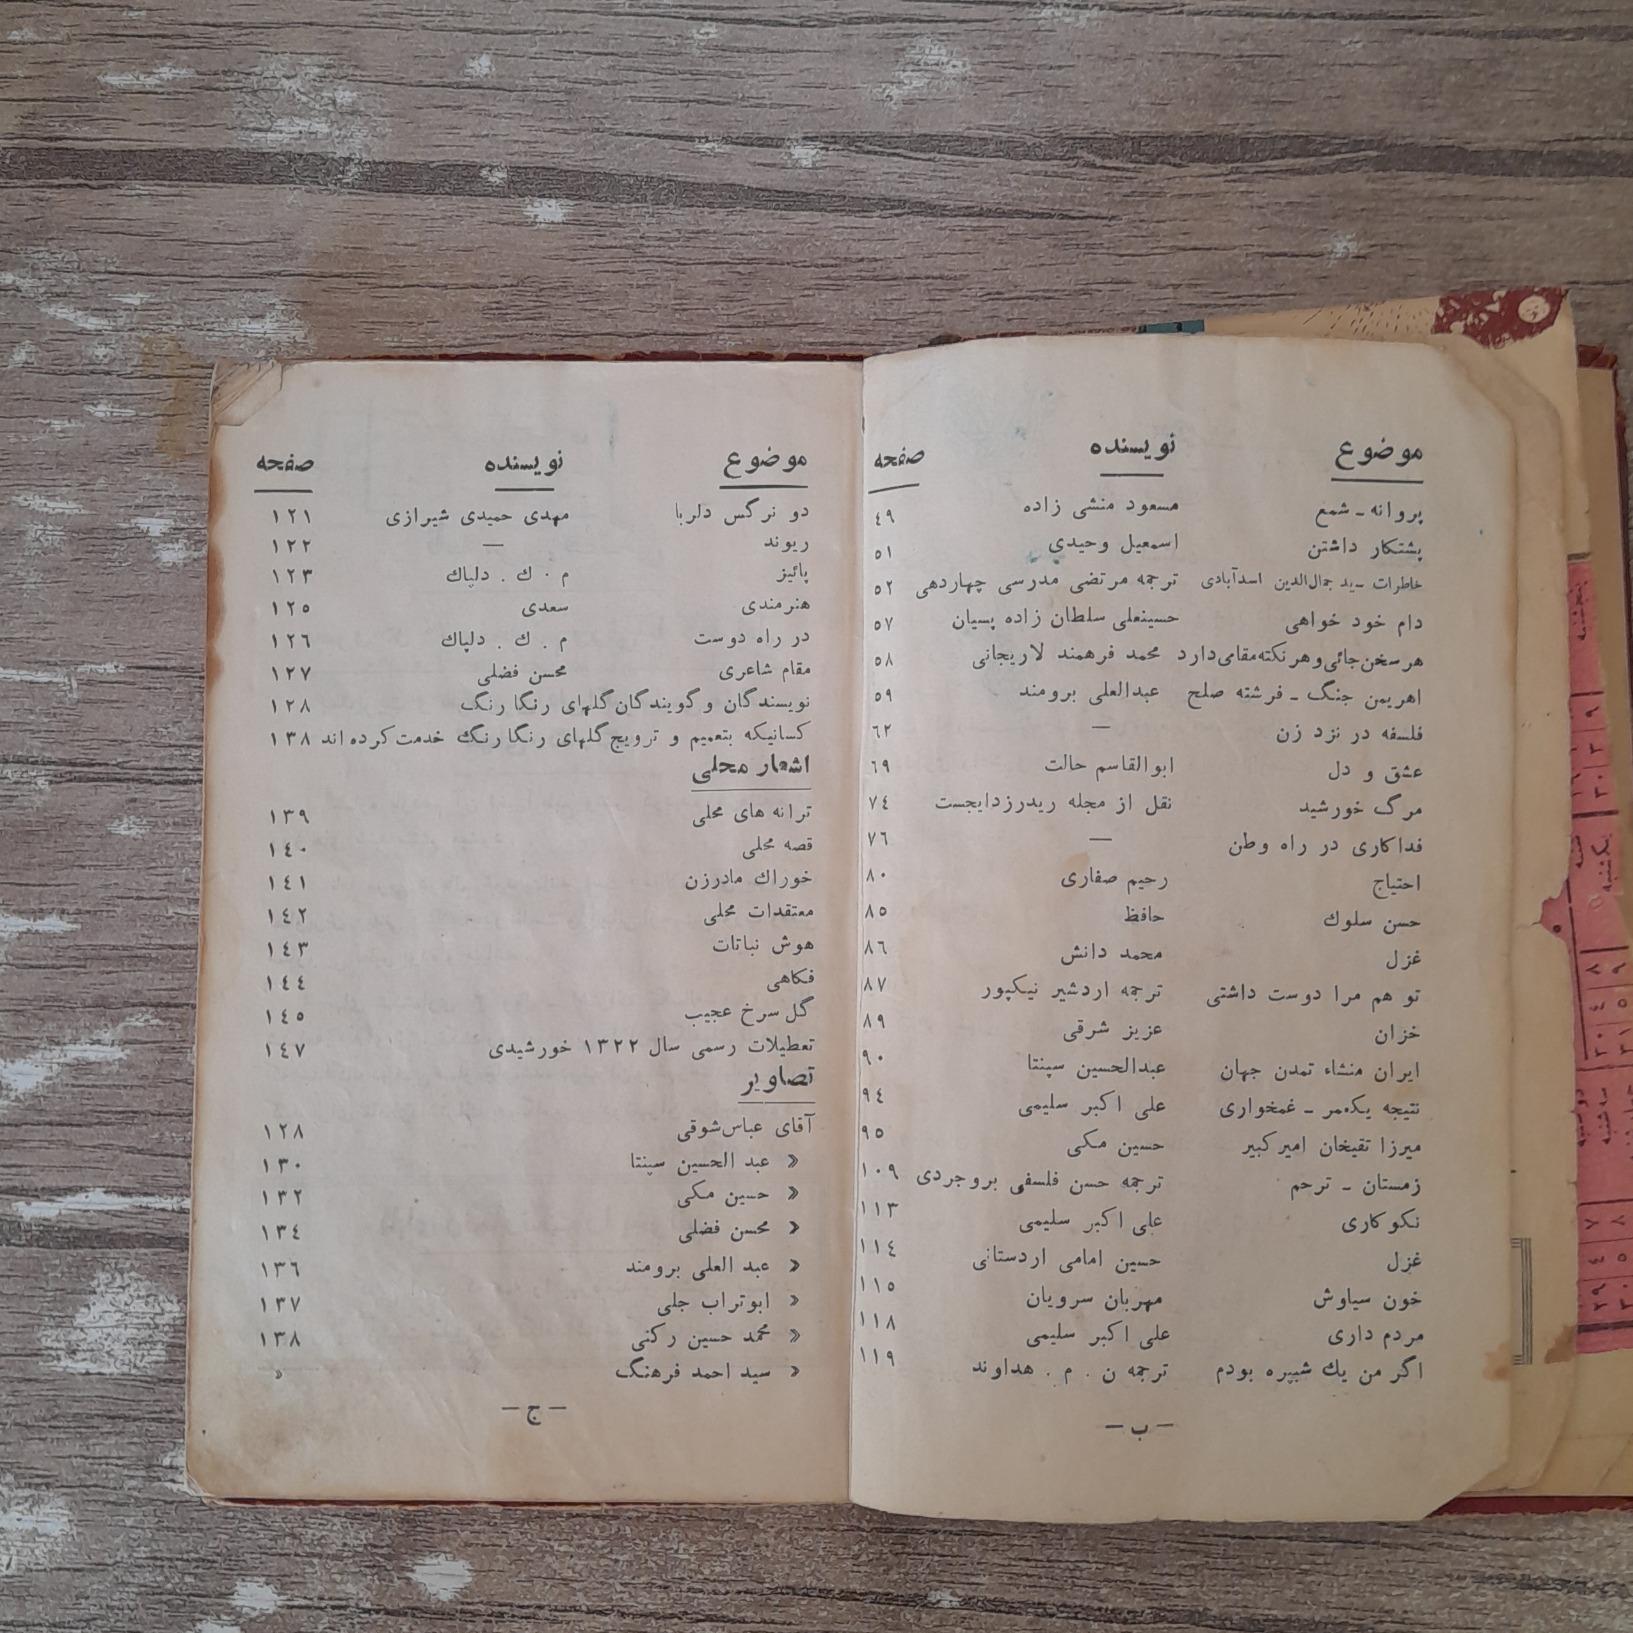 موضوع نویسنده صفحه
پروانه ـ شمع مسعود منشی زاده ٤٩
پشتکار داشتن اسمعیل وحیدی ٥١
خاطرات ـ ید جمال‌الدین اسدآبادی ترجمه مرتضی مدرسی چهاردهی ٥٢
دام خود خواهی حسینعلی سلطان زاده پسیان ٥٧
هر سخن جائی و هر نکته مقامی دارد محمد فرهمند لاریجانی ٥٨
اهریمن جنگ ـ فرشته صلح عبدالعلی برومند ٥٩
فلسفه در نزد زن — ٦٢
عشق و دل ابوالقاسم حالت ٦٩
مرگ خورشید نقل از مجله ریدرزدایجست ٧٤
فداکاری در راه وطن — ٧٦
احتیاج رحیم صفاری ٨٠
حسن سلوك حافظ ٨٥
غزل محمد دانش ٨٦
تو هم مرا دوست داشتی ترجمه اردشیر نیکپور ٨٧
خزان عزیز شرقی ٨٩
ایران منشاء تمدن جهان عبدالحسین سپنتا ٩٠
نتیجه یکعمر ـ غمخواری علی اکبر سلیمی ٩٤
میرزا تقیخان امیرکبیر حسین مکی ٩٥
زمستان ـ ترحم ترجمه حسن فلسفی بروجردی ١٠٩
نکوکاری علی اکبر سلیمی ١١٣
غزل حسین امامی اردستانی ١١٤
خون سیاوش مهربان سرویان ١١٥
مردم داری علی اکبر سلیمی ١١٨
اگر من یك شبپره بودم ترجمه ن . م . هداوند ١١٩
— ب —
موضوع نویسنده صفحه
دو نرگس دلربا مهدی حمیدی شیرازی ١٢١
ریوند — ١٢٢
پائیز م . ك . دلپاك ١٢٣
هنرمندی سعدی ١٢٥
در راه دوست م . ك . دلپاك ١٢٦
مقام شاعری محسن فضلی ١٢٧
نویسندگان و گویندگان گلهای رنگارنگ ١٢٨
کسانیکه بتعمیم و ترویج گلهای رنگارنگ خدمت کرده اند ١٣٨
اشعار محلی
ترانه های محلی ١٣٩
قصه محلی ١٤٠
خوراك مادرزن ١٤١
معتقدات محلی ١٤٢
هوش نباتات ١٤٣
فکاهی ١٤٤
گل سرخ عجیب ١٤٥
تعطیلات رسمی سال ١٣٢٢ خورشیدی ١٤٧
تصاویر
آقای عباس شوقی ١٢٨
« عبدالحسین سپنتا ١٣٠
« حسین مکی ١٣٢
« محسن فضلی ١٣٤
« عبدالعلی برومند ١٣٦
« ابوتراب جلی ١٣٧
« محمد حسین رکنی ١٣٨
« سید احمد فرهنگ «
— ج —